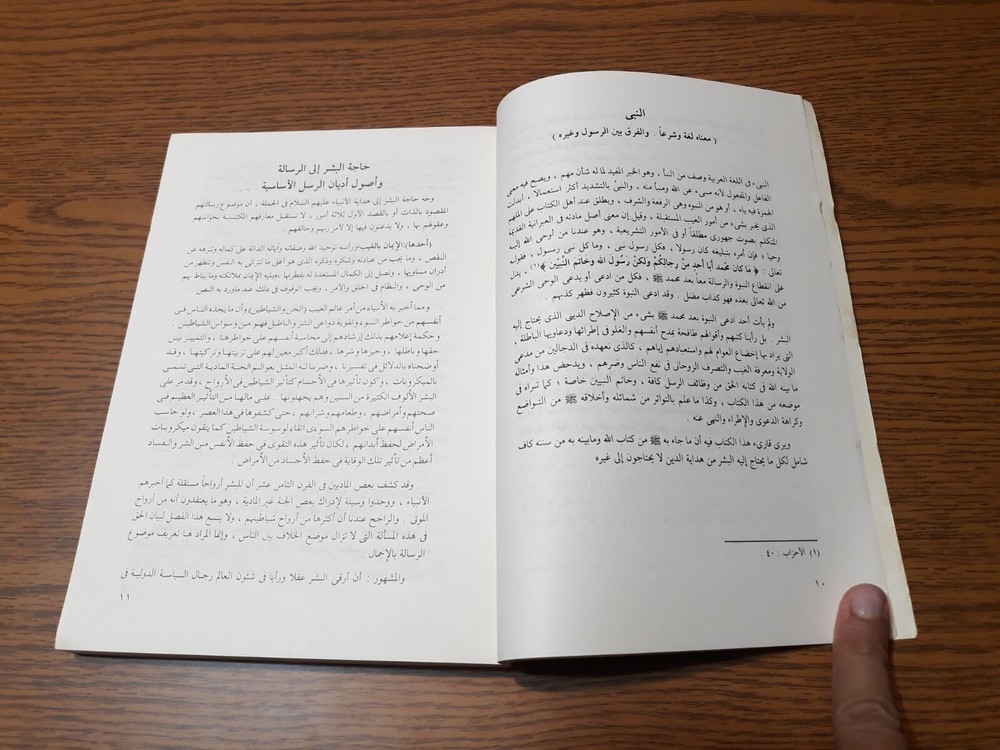 النبى
( معناه لغة وشرعاً . والفرق بين الرسول وغيره )
النبىء فى اللغة العربية وصف من النبأ ، وهو الخبر المفيد لما له شأن مهم ، ويصح فيه معنى
الفاعل والمفعول لأنه منبىء عن الله ومنبأ منه ، والنبىّ بالتشديد أكثر استعمالا ، أبدلت
الهمزة فيه ياء ، أو هو من النبوة وهى الرفعة والشرف ، ويطلق عند أهل الكتاب على الملهم
الذى يخبر بشىء من أمور الغيب المستقبلة ، وقيل إن معنى أصل مادته فى العبرانية القديمة
المتكلم بصوت جهورى مطلقاً أو فى الأمور التشريعية ، وهو عندنا من أوحى الله إليه
وحيا ؛ فإن أمره بتبليغه كان رسولا ، فكل رسول نبى ، وما كل نبى رسول ، فقوله
تعالى : ﴿ ما كان محمد أبا أحد مِنْ رجالكُمْ ولكنْ رَسُولَ الله وخاتم النَّبِيّين ﴾(١) ، يدل
على انقطاع النبوة والرسالة معاً بعد محمد ﷺ ، فكل من ادعى أو يدعى الوحى الشرعى
من الله تعالى بعده فهو كذاب مضل . وقد ادعى النبوة كثيرون فظهر كذبهم .
ولم يأت أحد ادعى النبوة بعد محمد ﷺ بشىء من الإصلاح الدينى الذى يحتاج إليه
البشر . بل رأينا كتبهم وأقوالهم طافحة بمدح أنفسهم والغلو فى إطرائها ودعاويها الباطلة ،
التى يراد بها إخضاع العوام لهم واستعبادهم إياهم ، كالذى نعهده فى الدجالين من مدعى
الولاية ومعرفة الغيب والتصرف الروحانى فى نفع الناس وضرهم ، ويدحض هذا وأمثاله
ما بينه الله فى كتابه الحق من وظائف الرسل كافة ، وخاتم النبيين خاصة ؛ كما تراه فى
موضعه من هذا الكتاب ، وكذا ما علم بالتواتر من شمائله وأخلاقه ﷺ من التواضع
وكراهة الدعوى والإطراء والنهى عنه .
ويرى قارىء هذا الكتاب فيه أن ما جاء به ﷺ من كتاب الله ومابينه به من سننه كاف
شامل لكل ما يحتاج إليه البشر من هداية الدين لا يحتاجون إلى غيره
(١) الأحزاب : ٤٠ .
١٠
حاجة البشر إلى الرسالة
وأصول أديان الرسل الأساسية
وجه حاجة البشر إلى هداية الأنبياء عليهم السلام فى الجملة ، أن موضوع رسالتهم
المقصود بالذات أو بالقصد الأول ثلاثة أمور ، لا تستقل معارفهم المكتسبة بحواسهم
وعقولهم بها ، ولا يذعنون فيها إلا لأمر ربهم وخالقهم :
(أحدها) الإيمان بالغيب، ورأسه توحيد الله وصفاته وآياته الدالة على كماله وتنزهه عن
النقص ، وما يجب من عبادته وشكره وذكره الذى هو أعلى ما تتزكى به أنفسهم وتتطهر من
أدران مساويها ، وتصل إلى الكمال المستعدة له بفطرتها ، ويليه الإيمان بملائكته وما يناط بهم
من الوحى ، والنظام فى الخلق والأمر ، ويجب الوقوف فى ذلك عند ماورد به النص .
ومما أخبر به الأنبياء من أمر عالم الغيب (الجن والشياطين) وأن ما يجده الناس فى
أنفسهم من خواطر السوء وتقوية دواعى الشر والباطل فهو من وسواس الشياطين .
وحكمة إعلامهم بذلك إرشادهم إلى محاسبة أنفسهم على خواطرها ، والتمييز بين
حقها وباطلها ، وخيرها وشرها ، فذلك أكبر معين لهم على تربيتها وتزكيتها ، وقد
أوضحناه بالدلائل فى تفسيرنا ، وضربنا له المثل بعوالم الجنة المادية التى تسمى
بالميكروبات ، وكون تأثيرها فى الأجسام كتأثير الشياطين فى الأرواح ، وقد مر على
البشر الألوف الكثيرة من السنين وهم يجهلونها . على مالها من التأثير العظيم فى
صحتهم وأمراضهم ، وطعامهم وشرابهم ، حتى كشفوها فى هذا العصر ، ولو حاسب
الناس أنفسهم على خواطرهم السوءى اتقاء لوسوسة الشياطين كما يتقون ميكروبات
الأمراض لحفظ أبدانهم ، لكان تأثير هذه التقوى فى حفظ الأنفس من الشر والفساد
أعظم من تأثير تلك الوقاية فى حفظ الأجساد من الأمراض .
وقد كشف بعض الماديين فى القرن الثامن عشر أن للبشر أرواحاً مستقلة كما أخبرهم
الأنبياء ، ووجدوا وسيلة لإدراك بعض الجنة غير المادية ، وهو ما يعتقدون أنه من أرواح
الموتى . والراجح عندنا أن أكثرها من أرواح شياطينهم ، ولا يتسع هذا الفصل لبيان الحق
فى هذه المسألة التى لا تزال موضع الخلاف بين الناس ، وإنما المراد هنا تعريف موضوع
الرسالة بالإجمال .
والمشهور : أن أرقى البشر عقلا ورأيا فى شئون العالم رجال السياسة الدولية فى
١١